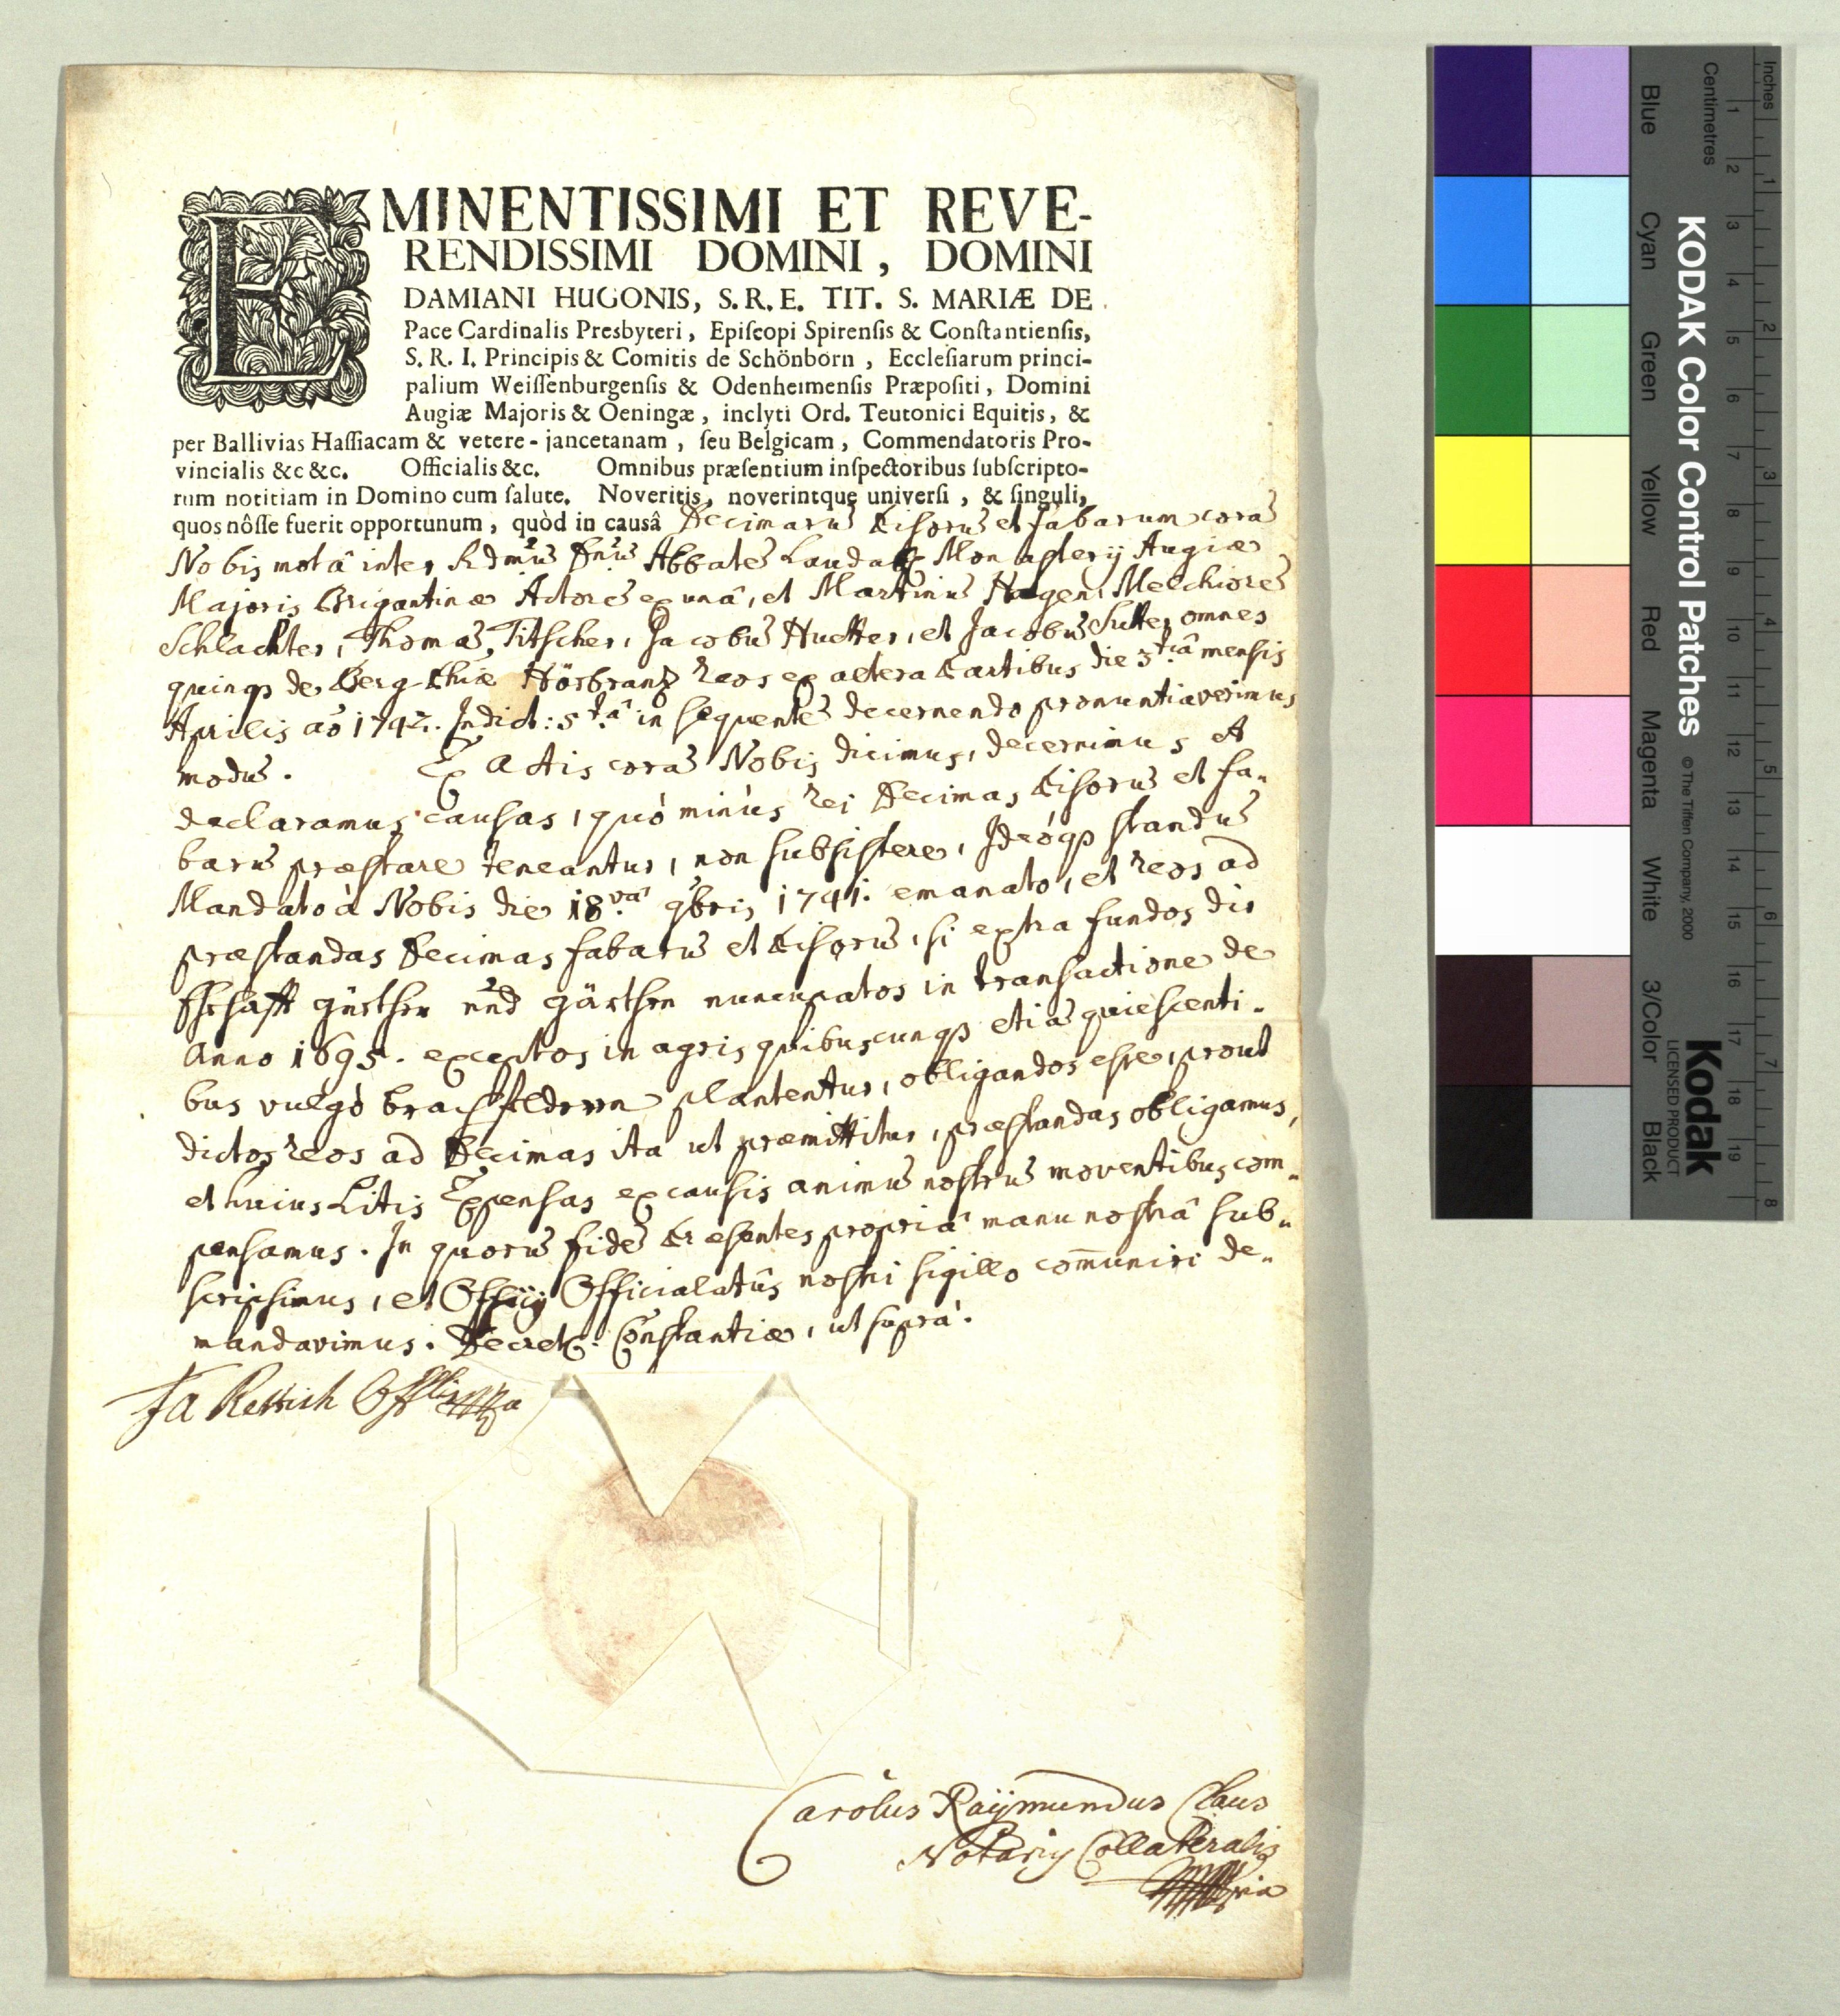 EMINENTISSIMI ET REVE-
RENDISSIMI DOMINI, DOMINI
DAMIANI HUGONIS, S. R. E. TIT. S. MARIÆ DE
Pace Cardinalis Presbyteri, Epiſcopi Spirenſis & Conſtantienſis,
S. R. I. Principis & Comitis de Schönborn, Eccleſiarum princi-
palium Weiſſenburgenſis & Odenheimenſis Præpoſiti, Domini
Augiæ Majoris & Oeningæ, inclyti Ord. Teutonici Equitis, &
per Ballivias Haſſiacam & vetere-jancetanam, ſeu Belgicam, Commendatoris Pro-
vincialis &c &c. Officialis &c. Omnibus præſentium inſpectoribus ſubſcripto-
rum notitiam in Domino cum ſalute. Noveritis, noverintque univerſi, & ſinguli,
quos nôſſe fuerit opportunum, quòd in causâ Decimarū Pisorū et fabarum corā
Nobis motâ inter Rdmūm Dnūm Abbatē Laudat. Monasterij Augiæ
Majoris Brigantinæ Actorē ex unâ, et Martinū Hagen, Melchiorē
Schlachter, Thomā Titscher, Jacobū Huetter, et Jacobū Sutter omnes
quinqꝫ de Berg Phiæ Hörbranz reos ex altera Partibus die 3tiâ mensis
Aprilis aō 1742. Indict: 5tâ in sequentē decernendo pronuntiaverimus
modū. Ex Actis corā Nobis dicimus, decernimus et
declaramus causas, quò minùs rei Decimas Pisorū et fa-
barū præstare teneantur, non subsistere, Ideóqꝫ standū
Mandato à Nobis die 18vâ 9bris 1741. emanato, et reos ad
præstandas Decimas fabarū et Pisorū, si extra fundos die
Ehehafft güether und gärthen nuncupatos in transactione de
Anno 1695. exceptos in agris quibuscunqꝫ etiā quiescenti-
bus vulgò brachfeldern plantentur, obligandos esse, prout
dictos reos ad Decimas ita ut præmittitur, præstandas obligamus,
et huius Litis Expensas ex causis animū nostrū moventibus com-
pensamus. In quorū fidē Præsentes propriâ manu nostrâ sub-
scripsimus, et Officij Officialatûs nostri sigillo com̄uniri de-
mandavimus. Decret. Constantiæ, ut suprà.
Ja Rettich Offlis mpa
Carolus Raijmundus Claus
Notarij Collateralis
mpria
KODAK Color Control Patches © The Tiffen Company, 2000
Kodak
LICENSED PRODUCT
Blue Cyan Green Yellow Red Magenta White 3/Color Black
Centimetres 1 2 3 4 5 6 7 8 9 10 11 12 13 14 15 16 17 18 19
Inches 1 2 3 4 5 6 7 8